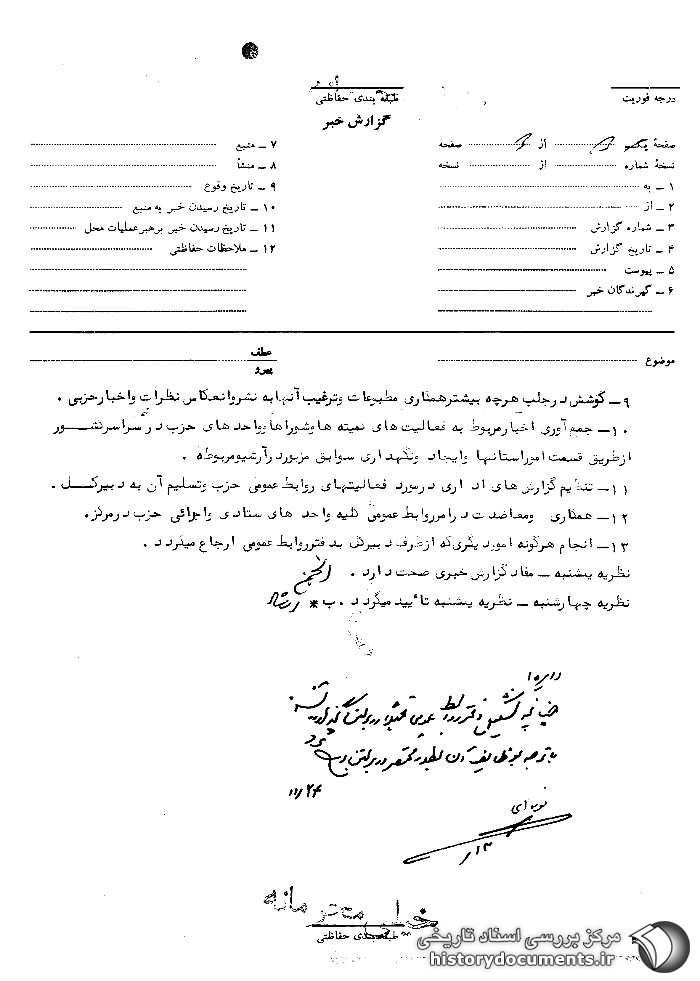 درجه فوریت
طبقه بندی حفاظتی
گزارش خبر
صفحهٔ از صفحه
نسخهٔ شماره از نسخه
۱ ـ به
۲ ـ از
۳ ـ شماره گزارش
۴ ـ تاریخ گزارش
۵ ـ پیوست
۶ ـ گیرندگان خبر
۷ ـ منبع
۸ ـ منشأ
۹ ـ تاریخ وقوع
۱۰ ـ تاریخ رسیدن خبر به منبع
۱۱ ـ تاریخ رسیدن خبر برهبر عملیات محل
۱۲ ـ ملاحظات حفاظتی
موضوع
عطف
پیرو
۹ـ کوشش در جلب هرچه بیشتر همکاری مطبوعات و ترغیب آنها به نشر و انعکاس نظرات و اخبار حزبی .
۱۰ـ جمع آوری اخبار مربوط به فعالیت های کمیته ها و شوراها و واحدهای حزب در سراسر کشور
از طریق قسمت امور استانها و ایجاد و نگهداری سوابق مزبور در آرشیو مربوطه .
۱۱ـ تنظیم گزارش های اداری در مورد فعالیتهای روابط عمومی حزب و تسلیم آن به دبیرکل .
۱۲ـ همکاری و معاضدت در امر روابط عمومی کلیه واحد های ستادی و اجرائی حزب در مرکز .
۱۳ـ انجام هرگونه امور دیگری که از طرف دبیرکل به دفتر روابط عمومی ارجاع میگردد .
نظریه یکشنبه ـ مفاد گزارش خبری صحت دارد .
نظریه چهارشنبه ـ نظریه یکشنبه تأیید میگردد . ب *
۱۱/۲۴
خیلی محرمانه
طبقه بندی حفاظتی
مرکز بررسی اسناد تاریخی
historydocuments.ir